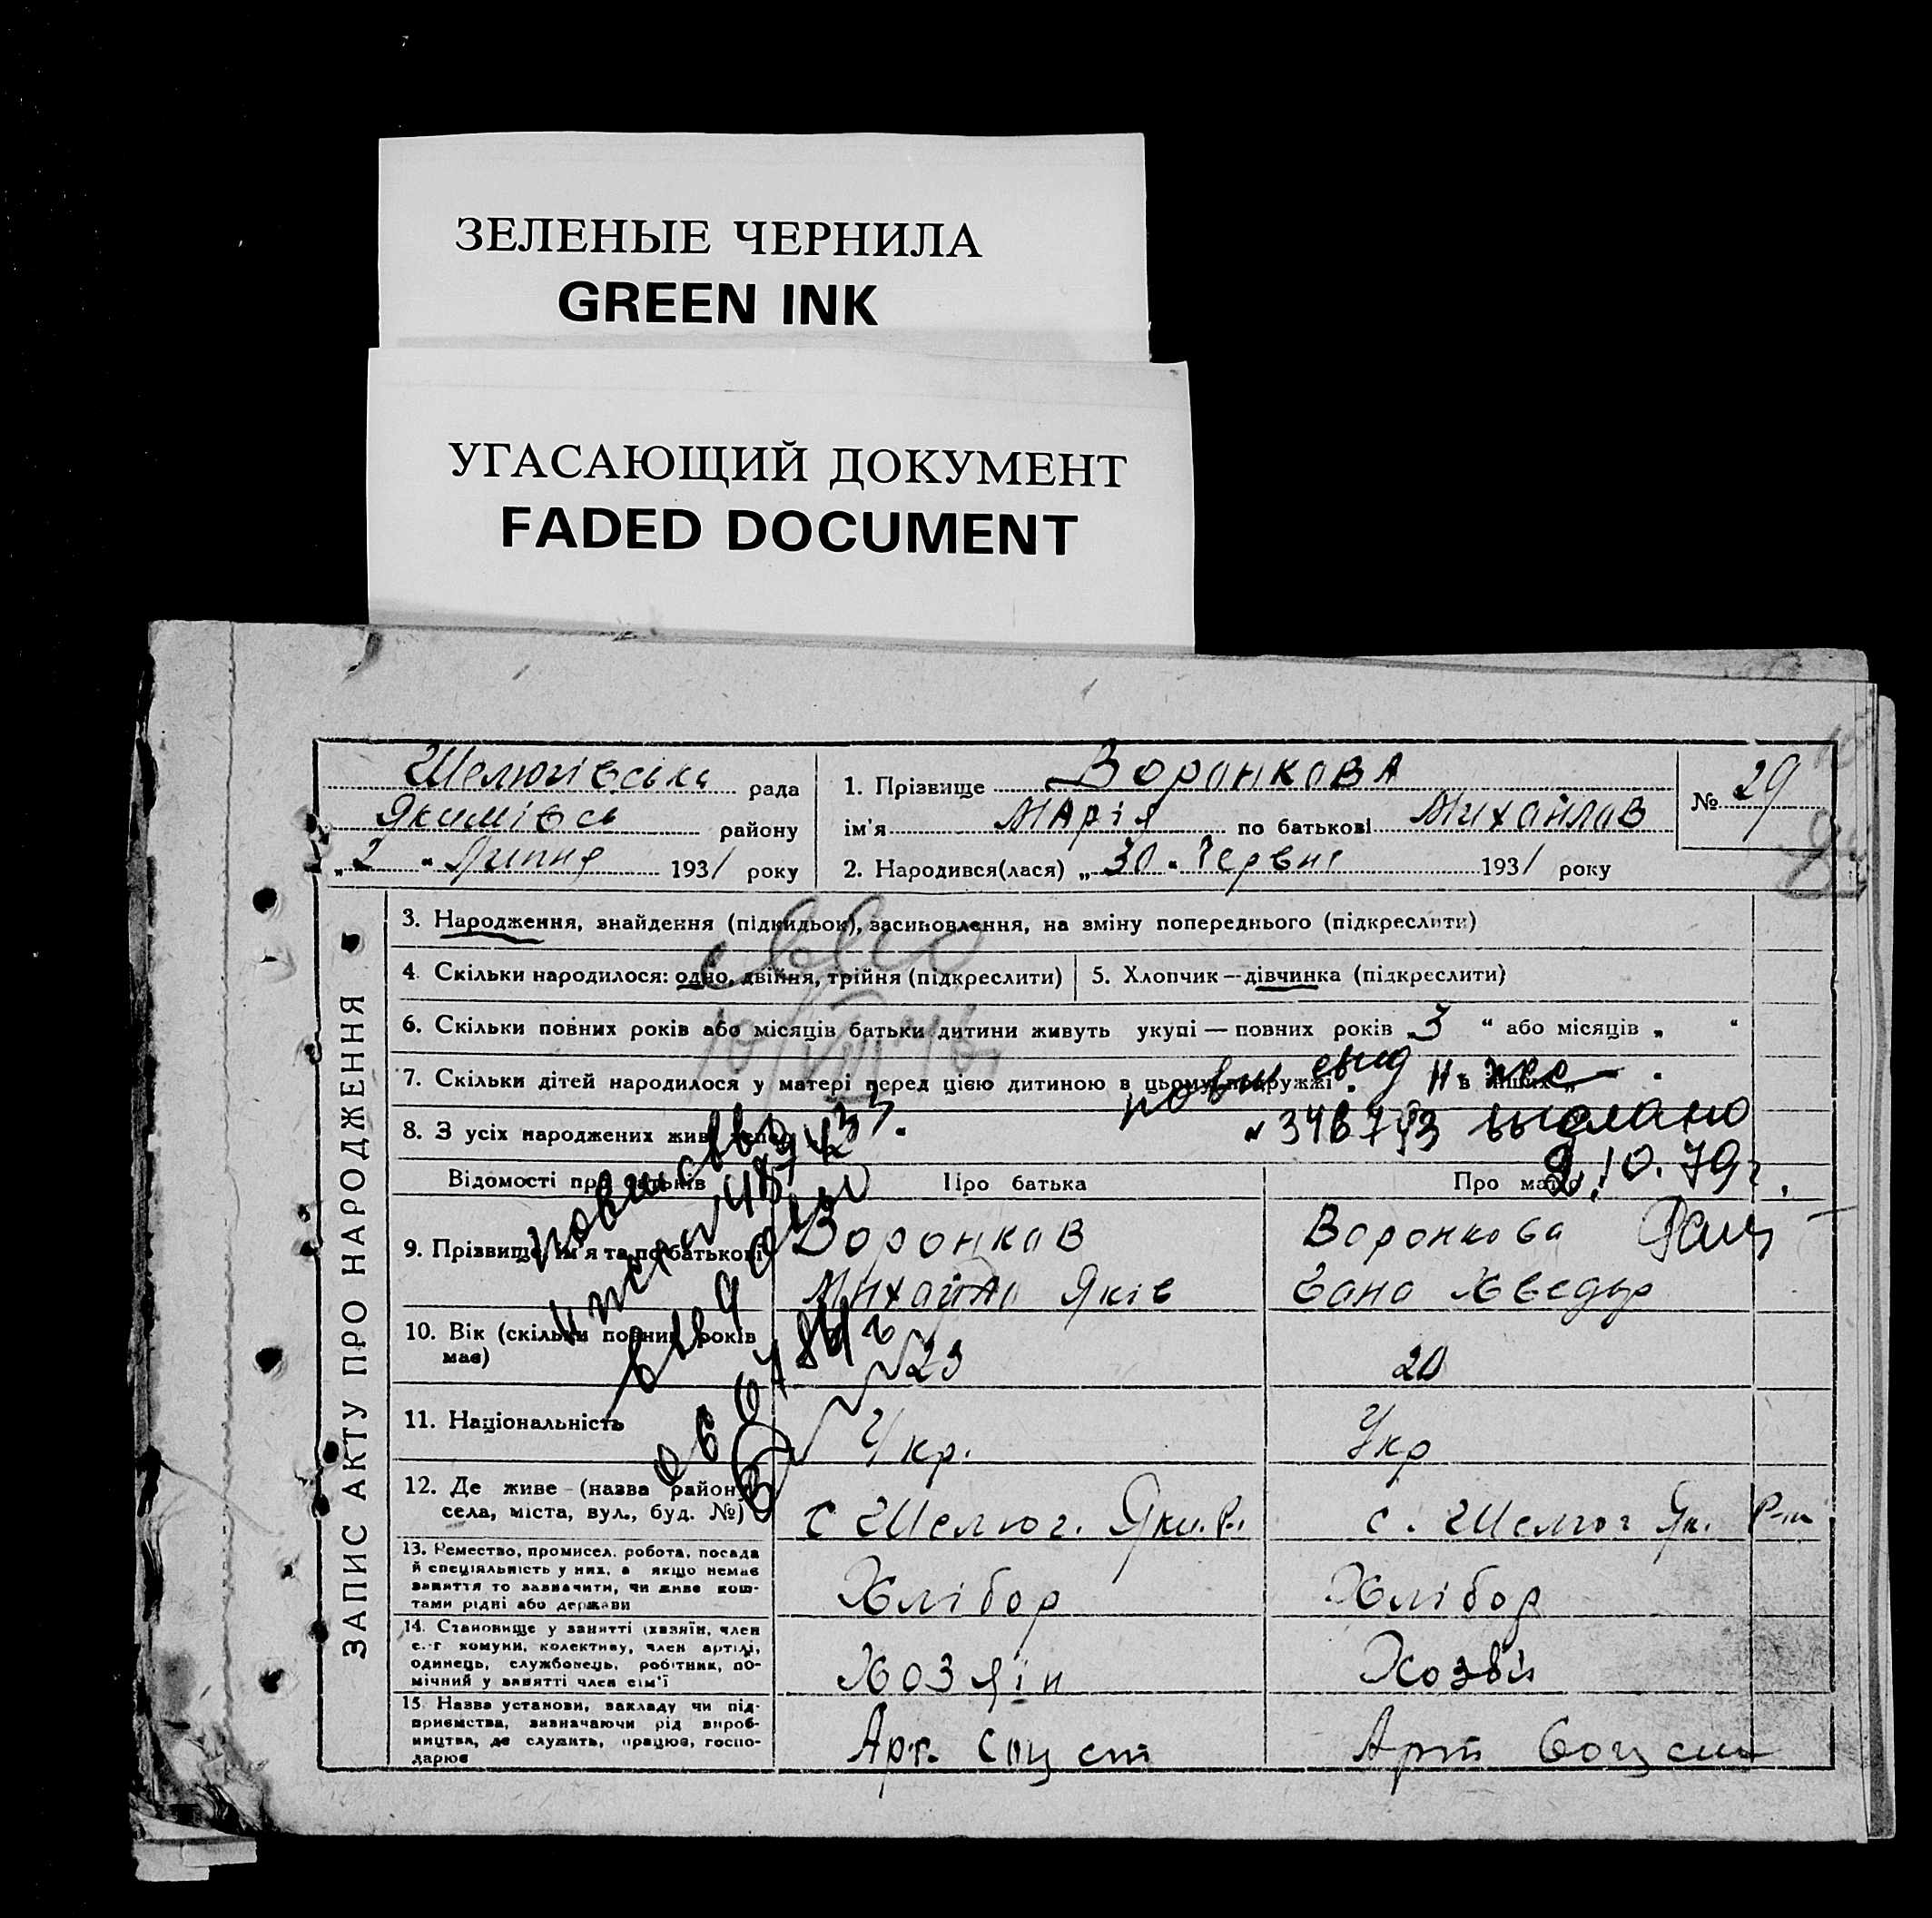 ЗЕЛЕНЫЕ ЧЕРНИЛА
GREEN INK
УГАСАЮЩИЙ ДОКУМЕНТ
FADED DOCUMENT
Шелюгівська рада
Якимівсь району
„ 2 “ Липня 1931 року
1. Прізвище Воронкова
ім'я Марія по батькові Михайлов
2. Народився(лася) „ 30 “ Червня 1931 року
№ 29
ЗАПИС АКТУ ПРО НАРОДЖЕННЯ
3. Народження, знайдення (підкидьок), засиновлення, на зміну попереднього (підкреслити)
4. Скільки народилося: одно, двійня, трійня (підкреслити) 5. Хлопчик — дівчинка (підкреслити)
6. Скільки повних років або місяців батьки дитини живуть укупі — повних років „ 3 “ або місяців „ “
7. Скільки дітей народилося у матері перед цією дитиною в цьому подружжі в інших
8. З усіх народжених живі
выслано
2.10.79г.
Відомості про батьків Про батька Про матір
9. Прізвище, ім'я та по батькові Воронков Воронкова
Михайло Яків
10. Вік (скільки повних років 23 20
має)
11. Національність Укр. Укр
12. Де живе (назва району
села, міста, вул., буд. №) с Шелюг. Яки. Р. с. Шелюг Як. Р-н
13. Ремество, промисел, робота, посада
й спеціяльність у них, а якщо немає
заняття то зазначити, чи живе кош-
тами рідні або держави Хлібор Хлібор
14. Становище у занятті (хазяїн, член
с.-г комуни, колективу, член артілі,
одинець, службовець, робітник, по-
мічний у занятті член сім'ї Хозяїн
15. Назва установи, закладу чи під-
приємства, зазначаючи рід вироб-
ництва, де служить, працює, госпо-
дарює Арт. Соц ст Арт